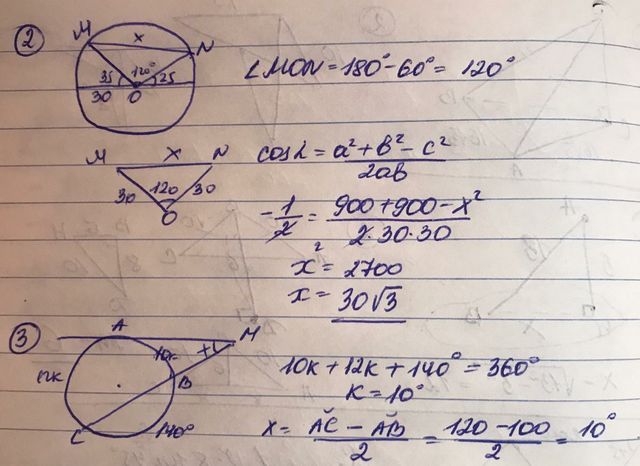 ②
M x N
35 120° 25
30 O
∠MON = 180° - 60° = 120°
M x N
30 120 30
O
cos α = (a² + b² - c²) / 2ab
-1/2 = (900 + 900 - x²) / 2·30·30
x² = 2700
x = 30√3
③
A M
10k x
12k B
C 140°
10k + 12k + 140° = 360°
k = 10°
x = (AC - AB) / 2 = (120 - 100) / 2 = 10°